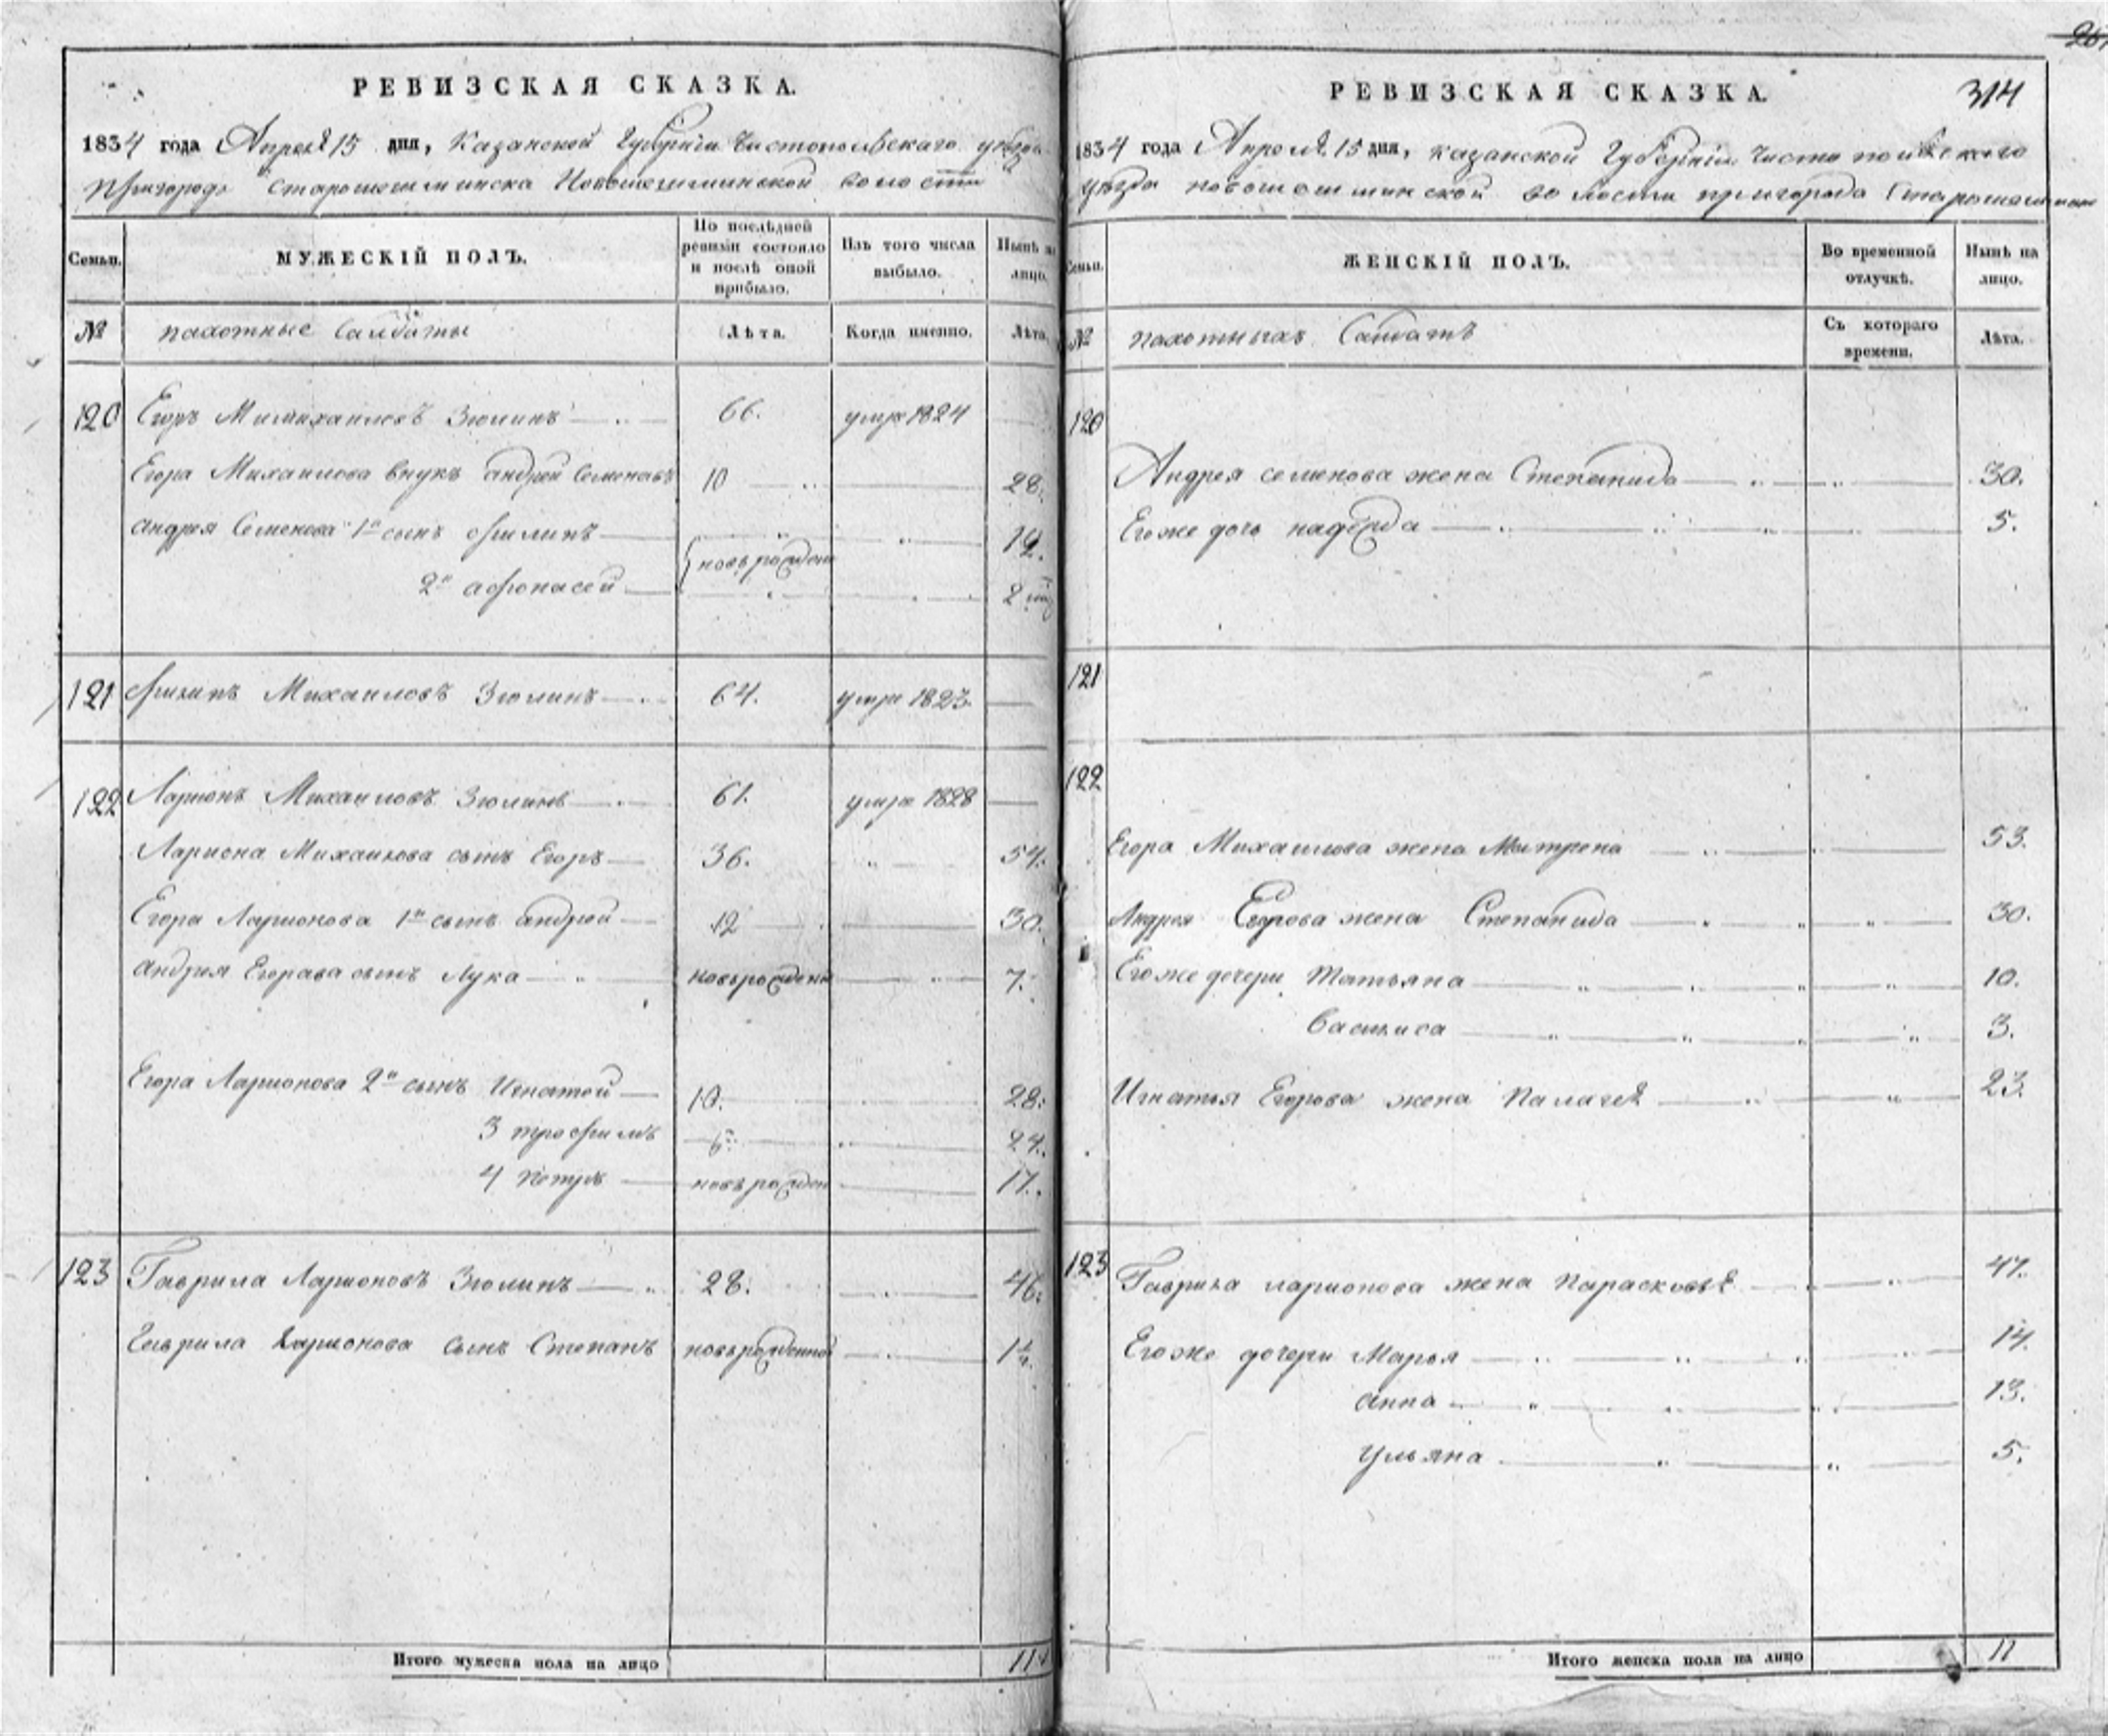 РЕВИЗСКАЯ СКАЗКА.
1834 года Апреля 15 дня, Казанской Губернiи Чистопольскаго уезда
Пригорода Старошешминска Новошешминской волости
Семьи. МУЖЕСКІЙ ПОЛЪ. По послѣдней ревизіи состояло и послѣ оной прибыло. Изъ того числа выбыло. Нынѣ на лицо.
№ пахотные Салдаты Лѣта. Когда именно. Лѣта.
120 Егоръ Михаиловъ Зюлинъ 66. умре 1824
Егора Михаилова внукъ андрей Семеновъ 10 28.
андрея Семенова 1й сынъ филипъ 12.
новърожден
2й афонасей 2
121 филипъ Михаиловъ Зюлинъ 64. умре 1823
122 Ларионъ Михаиловъ Зюлинъ 61. умре 1828
Лариона Михаилова сынъ Егоръ 36. 54.
Егора Ларионова 1й сынъ андрей 12 30.
андрея Егорава сынъ Лука новърожденъ 7.
Егора Ларионова 2й сынъ Игнатей 10. 28.
3 трофимъ 6. 24.
4 петръ новърожден 17.
123 Гаврила Ларионовъ Зюлинъ 28. 46.
Гаврила Ларионова сынъ Степанъ новърожденной
Итого мужеска пола на лицо 11
РЕВИЗСКАЯ СКАЗКА. 314
1834 года Апреля 15 дня, казанской Губернiи Чистопольскаго
уезда новошешминской волости пригорода Старошешминска
Семьи. ЖЕНСКІЙ ПОЛЪ. Во временной отлучкѣ. Нынѣ на лицо.
№ пахотныхъ Салдатъ Съ котораго времени. Лѣта.
120
Андрея семенова жена Степанида 30.
Егоже дочь надежда 5.
121
122
Егора Михаилова жена Матрена 53.
Андрея Егорова жена Степанида 30.
Егоже дочери Татьяна 10.
Василиса 3.
Игнатья Егорова жена Палагея 23.
123 Гаврила ларионова жена Парасковья 47.
Егоже дочери Марья 14.
анна 13.
ульяна 5.
Итого женска пола на лицо 11